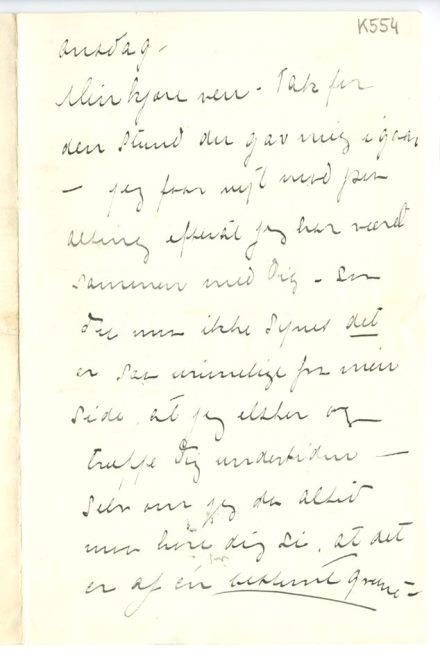 K554
onsdag –
Min kjære ven – Tak for
den stund du gav mig igaar
– jeg faar nyt mod paa
alting efterat jeg har været
sammen med Dig – saa
Du maa ikke synes det
er saa urimelige fra min
side, at jeg elsker og
træffe Dig undertiden –
selv om jeg da altid
maa høre dig si, at det
er af én bestemt grund –